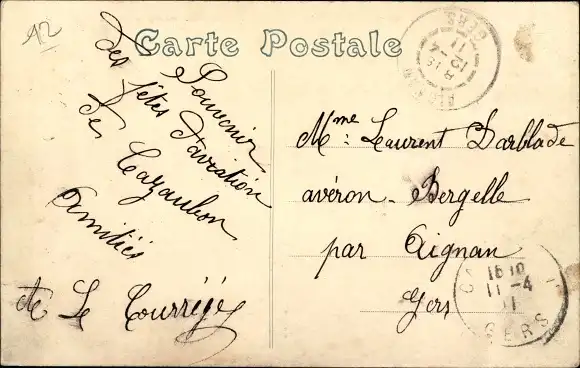 12
Carte Postale
Souvenir
des fêtes d'aviation
de Cazaubon
Amitiés
de Le Courrégé
Mme: Laurent Darblade
avéron-Bergelle
par Aignan
Gers
GERS
16 18
11-4
11
GERS